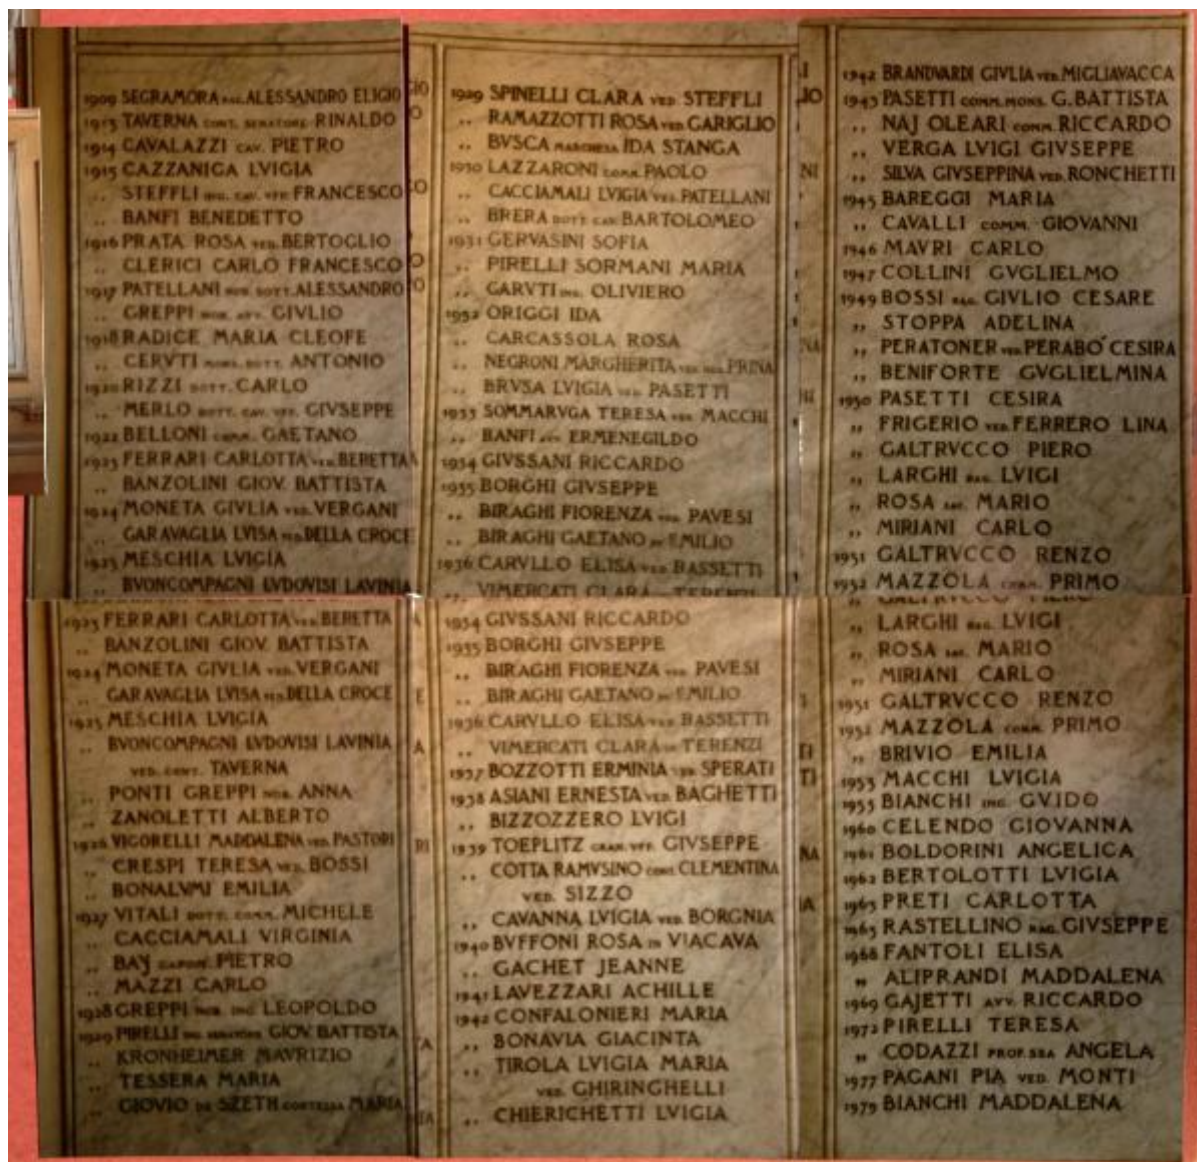 1909 SEGRAMORA RAG. ALESSANDRO ELIGIO
1913 TAVERNA CONT. SENATORE RINALDO
1914 CAVALAZZI CAV. PIETRO
1915 CAZZANIGA LVIGIA
„ STEFFLI ING. CAV. VFF. FRANCESCO
„ BANFI BENEDETTO
1916 PRATA ROSA VED. BERTOGLIO
„ CLERICI CARLO FRANCESCO
1917 PATELLANI NOB. DOTT. ALESSANDRO
„ GREPPI NOB. AVV. GIVLIO
1918 RADICE MARIA CLEOFE
„ CERVTI MONS. DOTT. ANTONIO
1920 RIZZI DOTT. CARLO
„ MERLO DOTT. CAV. VFF. GIVSEPPE
1922 BELLONI COMM. GAETANO
1923 FERRARI CARLOTTA VED. BERETTA
„ BANZOLINI GIOV. BATTISTA
1924 MONETA GIVLIA VED. VERGANI
„ GARAVAGLIA LVISA DELLA CROCE
1925 MESCHIA LVIGIA
BVONCOMPAGNI LVDOVISI LAVINIA
1923 FERRARI CARLOTTA VED. BERETTA
„ BANZOLINI GIOV. BATTISTA
1924 MONETA GIVLIA VED. VERGANI
„ GARAVAGLIA LVISA DELLA CROCE
1925 MESCHIA LVIGIA
„ BVONCOMPAGNI LVDOVISI LAVINIA
VED. CONT. TAVERNA
„ PONTI GREPPI NOB. ANNA
„ ZANOLETTI ALBERTO
1926 VIGORELLI MADDALENA VED. PASTORI
„ CRESPI TERESA VED. BOSSI
„ BONALVMI EMILIA
1927 VITALI DOTT. COMM. MICHELE
„ CACCIAMALI VIRGINIA
„ BAJ CAPOM. PIETRO
„ MAZZI CARLO
1928 GREPPI NOB. ING. LEOPOLDO
1929 PIRELLI ING. SENATORE GIOV. BATTISTA
„ KRONHEIMER MAVRIZIO
„ TESSERA MARIA
„ GIOVIO DE SZETH CONTESSA MARIA
1929 SPINELLI CLARA VED. STEFFLI
„ RAMAZZOTTI ROSA VED. GARIGLIO
„ BVSCA MARCHESA IDA STANGA
1930 LAZZARONI COMM. PAOLO
„ CACCIAMALI LVIGIA VED. PATELLANI
„ BRERA DOTT. CAV. BARTOLOMEO
1931 GERVASINI SOFIA
„ PIRELLI SORMANI MARIA
„ GARVTI ING. OLIVIERO
1932 ORIGGI IDA
„ CARCASSOLA ROSA
„ NEGRONI MARGHERITA VED. PRINA
„ BRVSA LVIGIA VED. PASETTI
1933 SOMMARVGA TERESA VED. MACCHI
„ BANFI AVV. ERMENEGILDO
1934 GIVSSANI RICCARDO
1935 BORGHI GIVSEPPE
„ BIRAGHI FIORENZA VED. PAVESI
„ BIRAGHI GAETANO DI EMILIO
1936 CARVLLO ELISA VED. BASSETTI
„ VIMERCATI CLARA IN TERENZI
1934 GIVSSANI RICCARDO
1935 BORGHI GIVSEPPE
„ BIRAGHI FIORENZA VED. PAVESI
„ BIRAGHI GAETANO DI EMILIO
1936 CARVLLO ELISA VED. BASSETTI
„ VIMERCATI CLARA IN TERENZI
1937 BOZZOTTI ERMINIA VED. SPERATI
1938 ASIANI ERNESTA VED. BAGHETTI
„ BIZZOZZERO LVIGI
1939 TOEPLITZ GRAN. VFF. GIVSEPPE
„ COTTA RAMVSINO CONT. CLEMENTINA
VED. SIZZO
„ CAVANNA LVIGIA VED. BORGNIA
1940 BVFFONI ROSA IN VIACAVA
„ GACHET JEANNE
1941 LAVEZZARI ACHILLE
1942 CONFALONIERI MARIA
„ BONAVIA GIACINTA
„ TIROLA LVIGIA MARIA
VED. GHIRINGHELLI
„ CHIERICHETTI LVIGIA
1942 BRANDVARDI GIVLIA VED. MIGLIAVACCA
1943 PASETTI COMM. MONS. G. BATTISTA
„ NAJ OLEARI COMM. RICCARDO
„ VERGA LVIGI GIVSEPPE
„ SILVA GIVSEPPINA VED. RONCHETTI
1945 BAREGGI MARIA
„ CAVALLI COMM. GIOVANNI
1946 MAVRI CARLO
1947 COLLINI GVGLIELMO
1949 BOSSI RAG. GIVLIO CESARE
„ STOPPA ADELINA
„ PERATONER VED. PERABÓ CESIRA
„ BENIFORTE GVGLIELMINA
1950 PASETTI CESIRA
„ FRIGERIO VED. FERRERO LINA
„ GALTRVCCO PIERO
„ LARGHI RAG. LVIGI
„ ROSA MARIO
„ MIRIANI CARLO
1951 GALTRVCCO RENZO
1952 MAZZOLA COMM. PRIMO
„ GALTRVCCO PIERO
„ LARGHI RAG. LVIGI
„ ROSA MARIO
„ MIRIANI CARLO
1951 GALTRVCCO RENZO
1952 MAZZOLA COMM. PRIMO
„ BRIVIO EMILIA
1953 MACCHI LVIGIA
1955 BIANCHI ING. GVIDO
1960 CELENDO GIOVANNA
1961 BOLDORINI ANGELICA
1962 BERTOLOTTI LVIGIA
1963 PRETI CARLOTTA
1965 RASTELLINO RAG. GIVSEPPE
1968 FANTOLI ELISA
„ ALIPRANDI MADDALENA
1969 GAJETTI AVV. RICCARDO
1972 PIRELLI TERESA
„ CODAZZI PROF.SSA ANGELA
1977 PAGANI PIA VED. MONTI
1979 BIANCHI MADDALENA